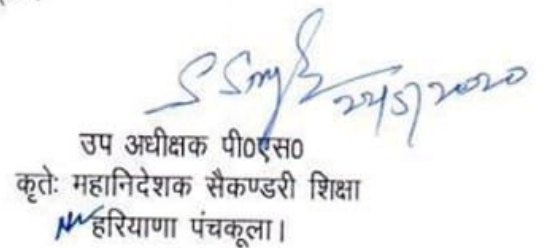 22/5/2020
उप अधीक्षक पी0एस0
कृतेः महानिदेशक सैकण्डरी शिक्षा
हरियाणा पंचकूला।